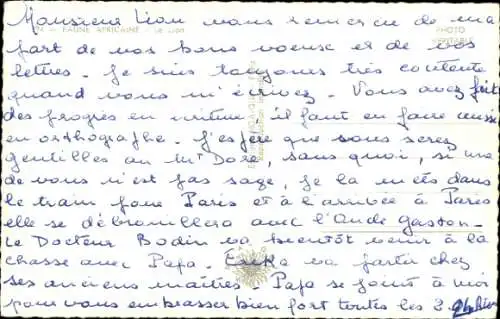 Monsieur Lion vous remercie de ma
FAUNE AFRICAINE - Le Lion
PHOTO
part de vos bons voeux et de vos
lettres. Je suis toujours très contente
quand vous m'écrivez. Vous avez fait
des progrès en écriture. il faut en faire aussi
en orthographe. J'espère que vous serez
gentilles au Mt Dore, sans quoi, si une
de vous n'est pas sage, je la mets dans
le train pour Paris et à l'arrivée à Paris
elle se débrouillera avec l'Oncle Gaston.
Le Docteur Bodin va bientôt venir à la
chasse avec Papa. va partir chez
ses anciens maîtres. Papa se joint à moi
pour vous embrasser bien fort toutes les 2.